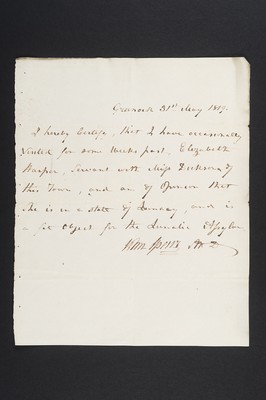 Greenock 31st May 1819.
I hereby Certify, that I have occasionally
visited for some weeks past, Elizabeth
Harper, Servant with Miss Dickson of
this Town, and am of Opinion that
She is in a state of Insanity, and is
a fit object for the Lunatic Asylum
M.D.